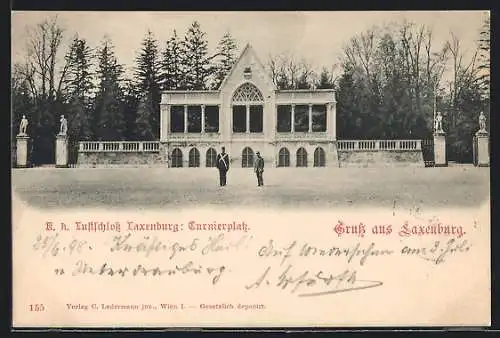 K. k. Luftschloß Laxenburg: Turnierplatz.
Gruß aus Laxenburg.
25/6 98. Kräftiges Heil!
Auf Wiedersehen am 2 Juli
u
155
Verlag C. Ledermann jun., Wien I. — Gesetzlich deponirt.